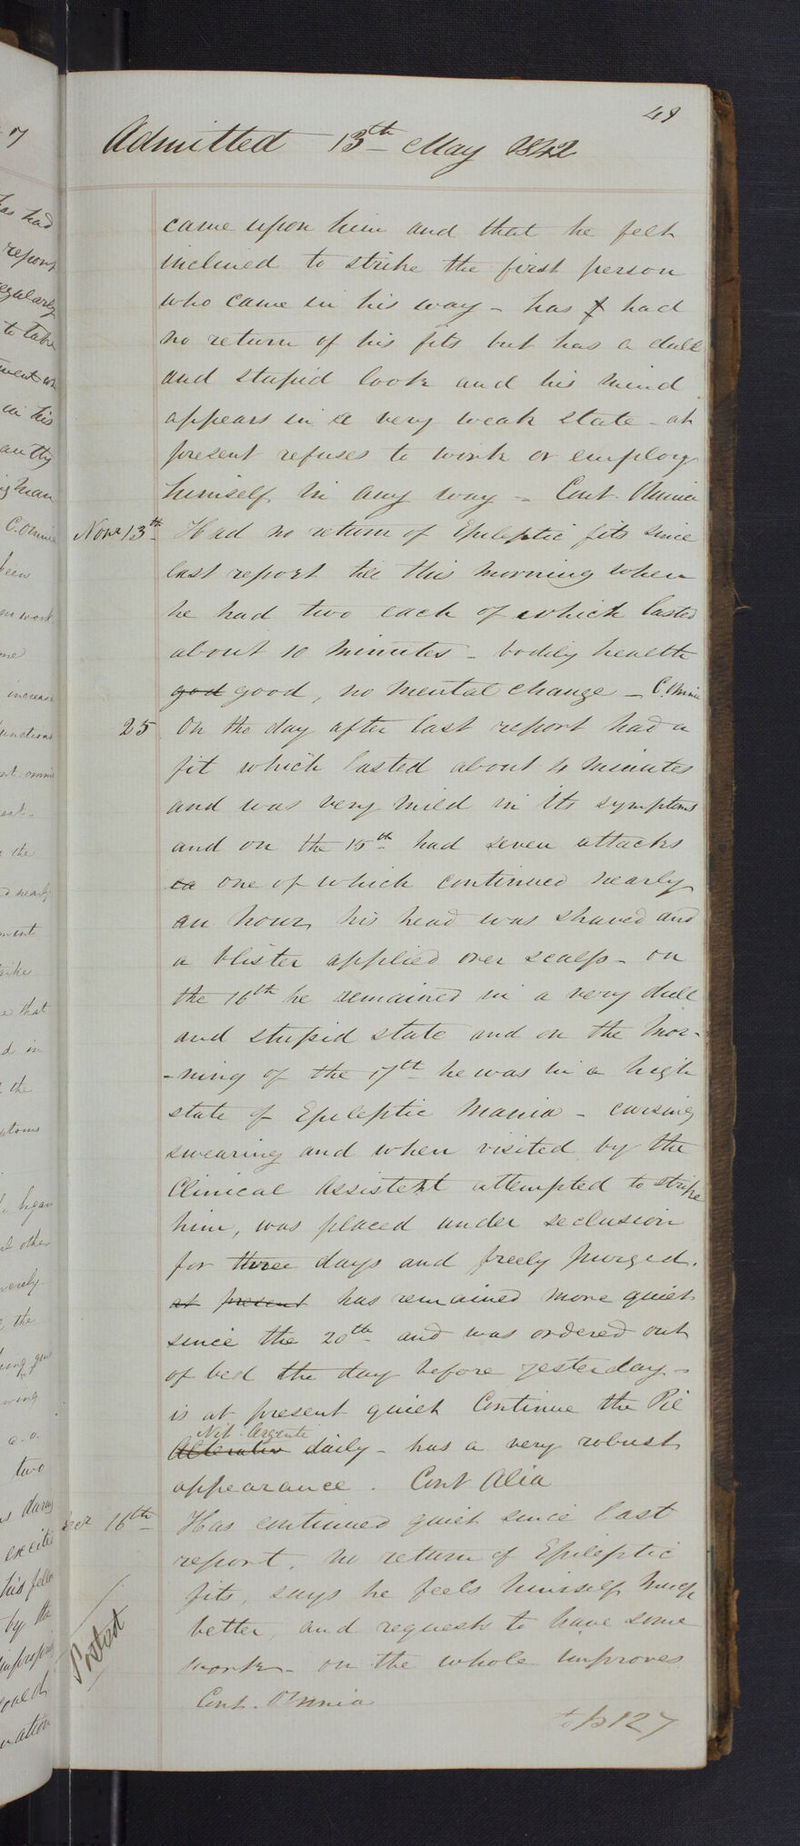 49
Admitted 13th May 1842
came upon him and that he felt
inclined to strike the first person
who came in his way - has had
no return of his fits but has a dull
and stupid look and his mind
appears in a very weak state - at
present refuses to work or employ
himself in any way - Cont. Omnia
Novr 13th Had no return of Epileptic fits since
last report till this morning when
he had two each of which lasted
about 10 minutes - bodily health
god good, no mental change - C. Omnia
25 On the day after last report had a
fit which lasted about 4 minutes
and was very mild in its symptoms
and on the 15th had seven attacks
one of which continued nearly
an hour, his head was shaved and
a blister applied over scalp - on
the 16th he remained in a very dull
and stupid state and on the mor-
-ning of the 17th he was in a high
state of Epileptic Mania - cursing
swearing and when visited by the
Clinical Assistent attempted to strike
him, was placed under seclusion
for three days and freely purged.
at present has remained more quiet
since the 20th and was ordered out
of bed the day before yesterday -
is at present quiet Continue the Pil
Nit. Argenti
Alterativ daily - has a very robust
appearance. Cont Alia
Decr 16th Has continued quiet since last
report. no return of Epileptic
fits, says he feels himself much
better, and requests to have some
work - on the whole improves
Cont. Omnia
Posted
to p 127
has had
report
regularly
to take
in his
C. Omnia
been
increase
functions
the
that
in
the
began
other
the
two
his fellow
by the